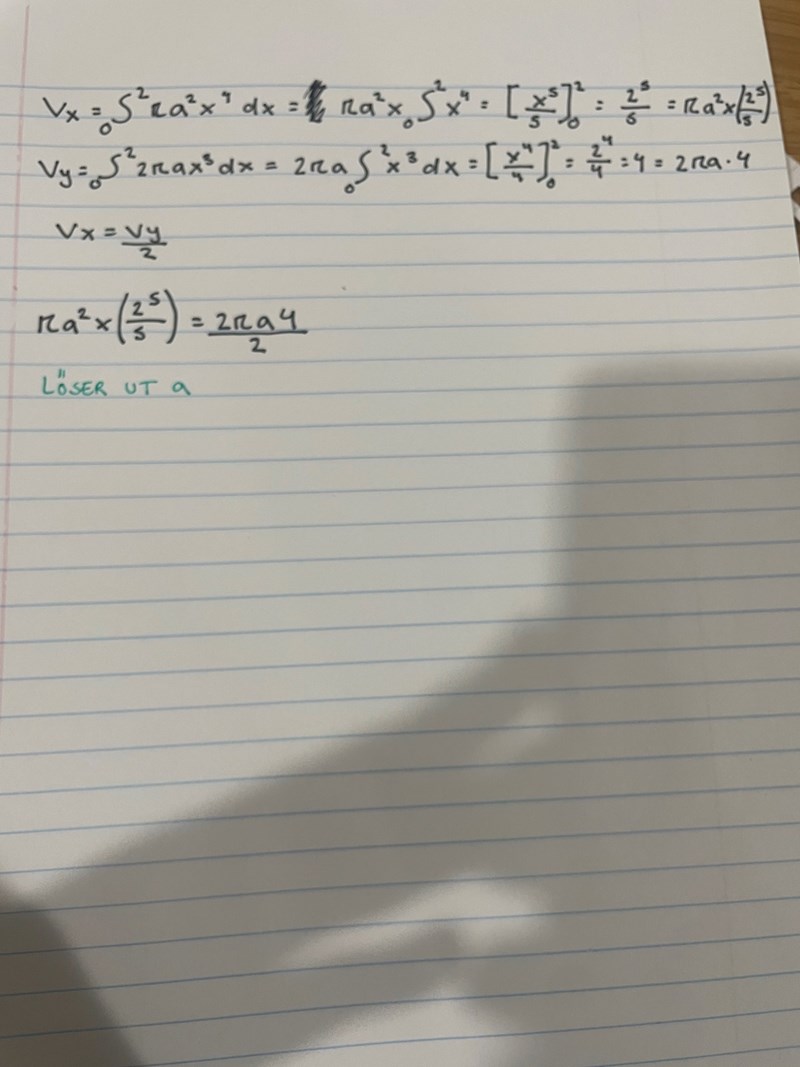 Vx = ₀∫² πa²x⁴ dx = πa²x ₀∫² x⁴ = [x⁵/5]₀² = 2⁵/5 = πa²x(2⁵/5)
Vy = ₀∫² 2πax³dx = 2πa ₀∫² x³dx = [x⁴/4]₀² = 2⁴/4 = 4 = 2πa·4
Vx = Vy/2
πa²x(2⁵/5) = 2πa4/2
LÖSER UT a